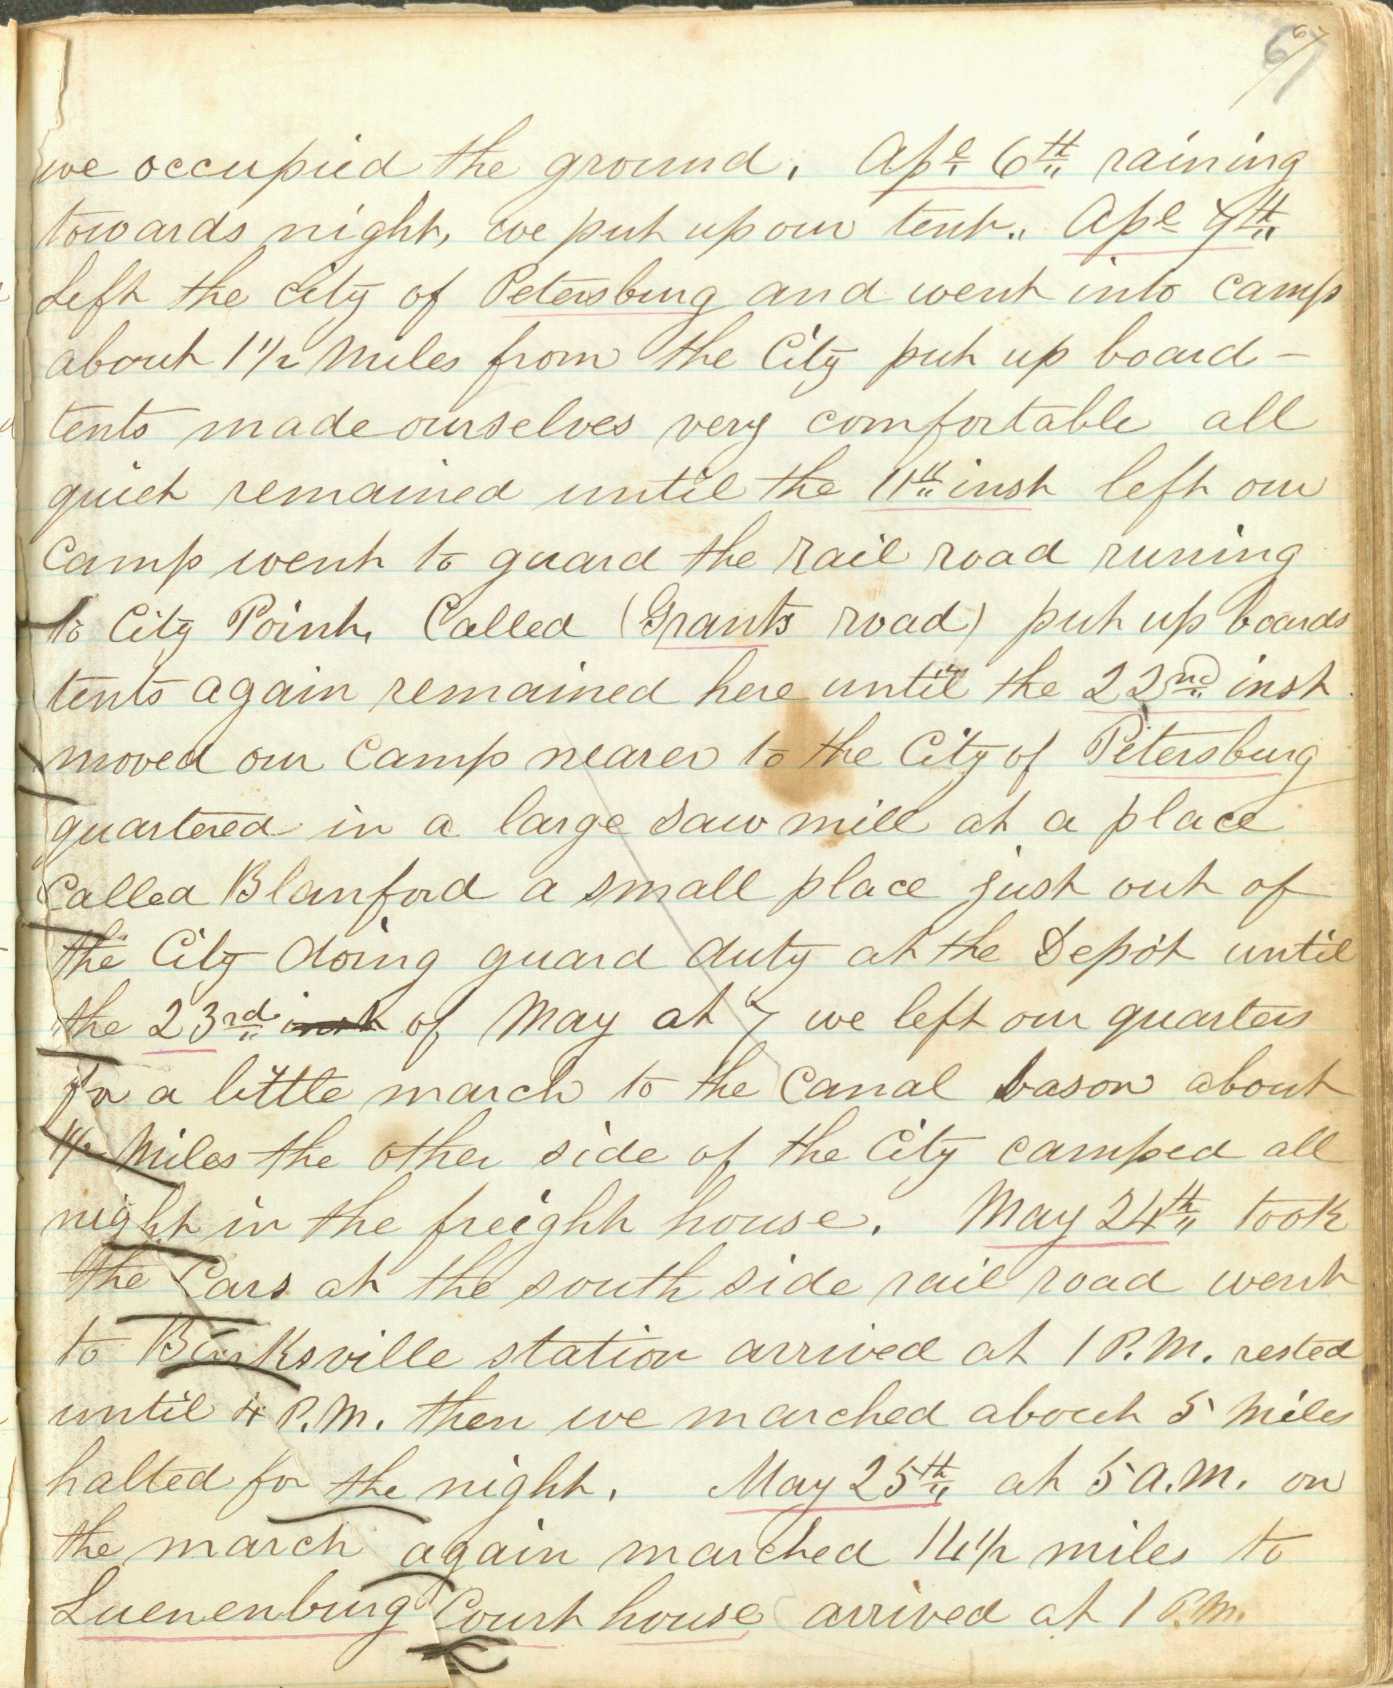 67
67
we occupied the ground. Apl 6th raining
towards night, we put up our tent. Apl 7th
Left the City of Petersburg and went into camp
about 1 1/2 Miles from the City put up board-
tents made ourselves very comfortable all
quiet remained until the 11th inst left our
Camp went to guard the rail road runing
to City Point, Called (Grants road) put up boards
tents again remained here until the 22nd inst
moved our Camp nearer to the City of Petersburg
quartered in a large saw mill at a place
Called Blanford a small place just out of
the City doing guard duty at the Depot until
the 23rd inst of May at 7 we left our quarters
for a little march to the Canal bason about
1 1/2 Miles the other side of the City camped all
night in the freight house. May 24th took
the Cars at the south side rail road went
to Burksville station arrived at 1 P.M. rested
until 4 P.M. then we marched about 5 Miles
halted for the night. May 25th at 5 A.M. on
the march again marched 14 1/2 miles to
Luenenburg Court house arrived at 1 P.M.